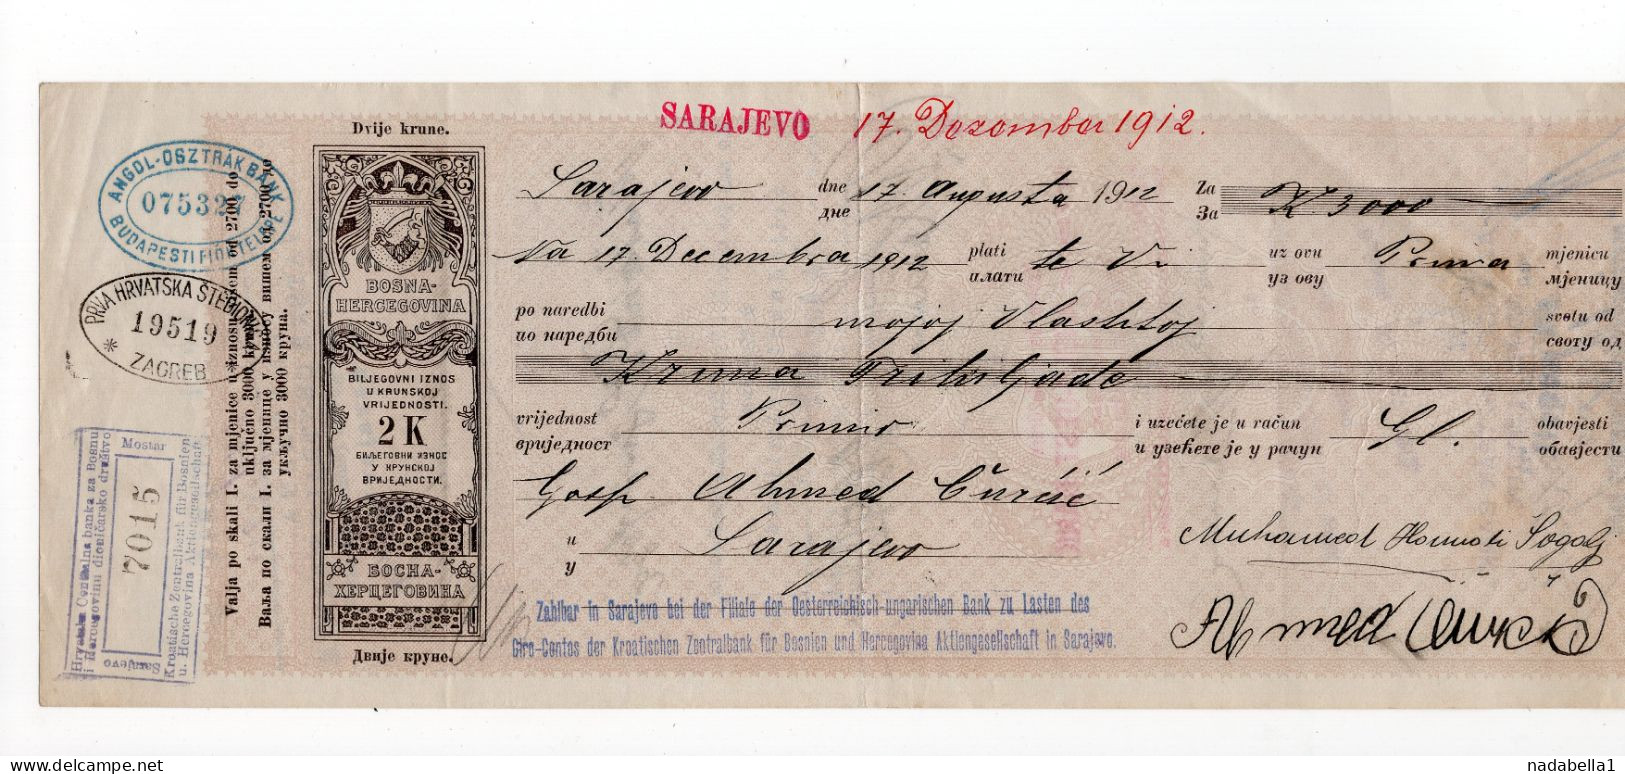 SARAJEVO 17. Dezember 1912.
Dvije krune.
ANGOL-OSZTRÁK BANK
075327
BUDAPESTI FIÓKTELEPE
PRVA HRVATSKA ŠTEDION
19519
* ZAGREB
Hrvatska Centralna banka za Bosnu
i Hercegovinu dioničarsko društvo
Mostar
7015
Sarajevo
Kroatische Zentralbank für Bosnien
u. Hercegovina Aktiengesellschaft
Valja po skali I. za mjenice u iznosu
uključno 3000 kruna.
Ваља по скали I. за мјенице у износу вишем од 2700 до
укључно 3000 круна.
BOSNA-
HERCEGOVINA
BILJEGOVNI IZNOS
U KRUNSKOJ
VRIJEDNOSTI.
2 K
БИЉЕГОВНИ ИЗНОС
У КРУНСКОЈ
ВРИЈЕДНОСТИ.
БОСНА-
ХЕРЦЕГОВИНА
Двије круне.
Sarajevo dne 17. Augusta 1912 Za K 3000
дне За
Na 17. Decembra 1912 plati te Vi uz ovu Prima mjenicu
плати уз ову мјеницу
po naredbi mojoj Vlastitoj svotu od
по наредби своту од
Kruna Trihiljade
vrijednost Primio i uzećete je u račun Gl. obavjesti
вриједност и узећете је у рачун обавјести
Gosp. Ahmed Čurčić
u Sarajevo
у
Muhamed
Ahmed
Zahlbar in Sarajevo bei der Filiale der Oesterreichisch-ungarischen Bank zu Lasten des
Giro-Contos der Kroatischen Zentralbank für Bosnien und Hercegovina Aktiengesellschaft in Sarajevo.
nadabella1